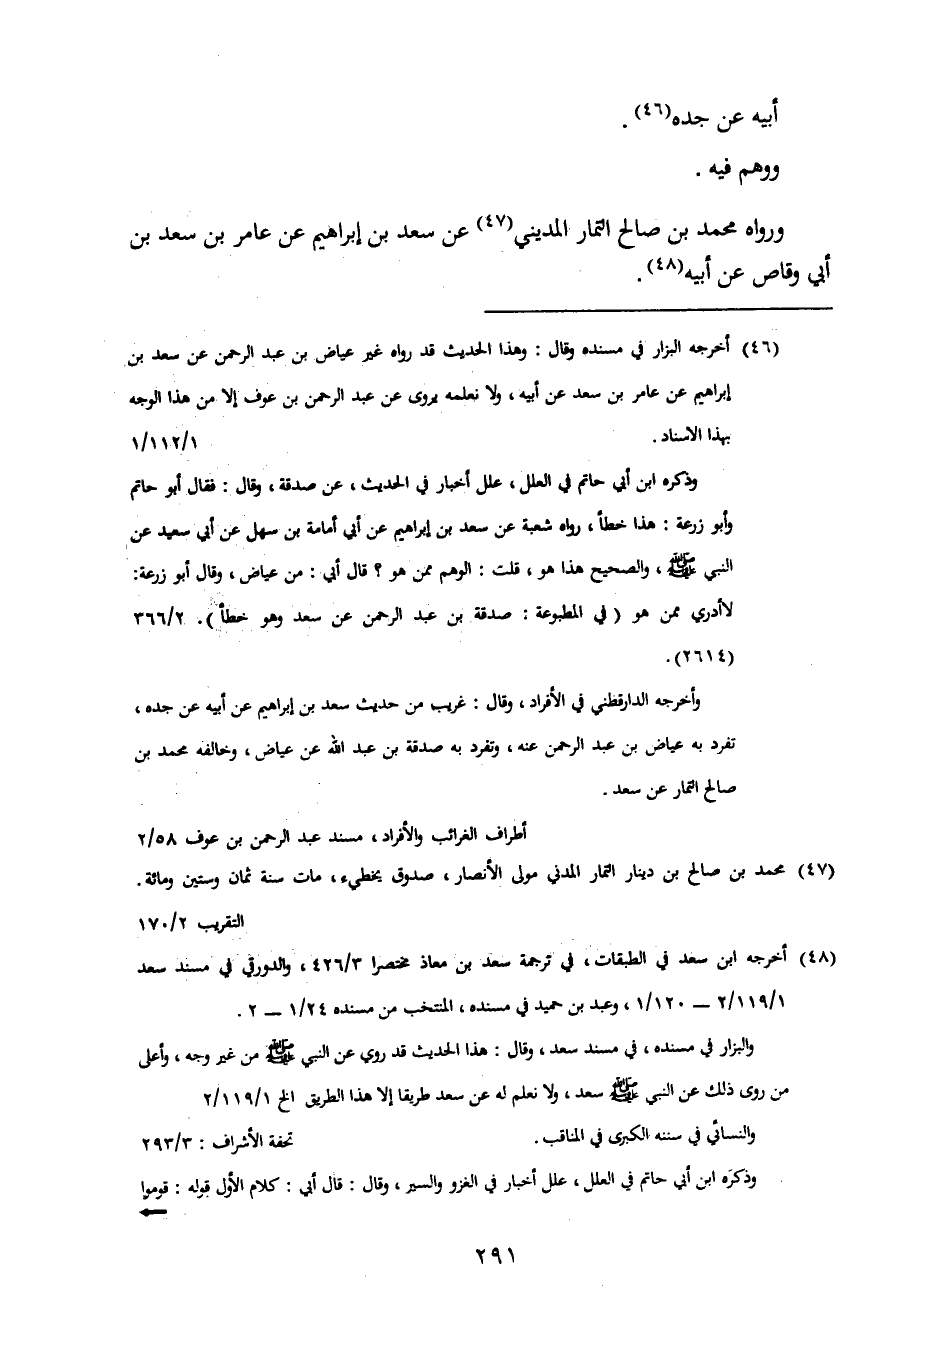 أبيه عن جده(٤٦) .
ووهم فيه .
ورواه محمد بن صالح التمار المديني(٤٧) عن سعد بن إبراهيم عن عامر بن سعد بن
أبي وقاص عن أبيه(٤٨) .
(٤٦) أخرجه البزار في مسنده وقال : وهذا الحديث قد رواه غير عياض بن عبد الرحمن عن سعد بن
إبراهيم عن عامر بن سعد عن أبيه ، ولا نعلمه يروى عن عبد الرحمن بن عوف إلا من هذا الوجه
بهذا الاسناد . ١/١١٢/١
وذكره ابن أبي حاتم في العلل ، علل أخبار في الحديث ، عن صدقة ، وقال : فقال أبو حاتم
وأبو زرعة : هذا خطأ ، رواه شعبة عن سعد بن إبراهيم عن أبي أمامة بن سهل عن أبي سعيد عن
النبي ﷺ ، والصحيح هذا هو ، قلت : الوهم ممن هو ؟ قال أبي : من عياض ، وقال أبو زرعة:
لاأدري ممن هو ( في المطبوعة : صدقة بن عبد الرحمن عن سعد وهو خطأ ). ٣٦٦/٢
(٢٦١٤) .
وأخرجه الدارقطني في الأفراد ، وقال : غريب من حديث سعد بن إبراهيم عن أبيه عن جده ،
تفرد به عياض بن عبد الرحمن عنه ، وتفرد به صدقة بن عبد الله عن عياض ، وخالفه محمد بن
صالح التمار عن سعد .
أطراف الغرائب والأفراد ، مسند عبد الرحمن بن عوف ٢/٥٨
(٤٧) محمد بن صالح بن دينار التمار المدني مولى الأنصار ، صدوق يخطيء ، مات سنة ثمان وستين ومائة .
التقريب ١٧٠/٢
(٤٨) أخرجه ابن سعد في الطبقات ، في ترجمة سعد بن معاذ مختصرا ٤٢٦/٣ ، والدورقي في مسند سعد
٢/١١٩/١ — ١/١٢٠ ، وعبد بن حميد في مسنده ، المنتخب من مسنده ١/٢٤ — ٢ .
والبزار في مسنده ، في مسند سعد ، وقال : هذا الحديث قد روي عن النبي ﷺ من غير وجه ، وأعلى
من روى ذلك عن النبي ﷺ سعد ، ولا نعلم له عن سعد طريقا إلا هذا الطريق الخ ٢/١١٩/١
والنسائي في سننه الكبرى في المناقب . تحفة الأشراف : ٢٩٣/٣
وذكره ابن أبي حاتم في العلل ، علل أخبار في الغزو والسير ، وقال : قال أبي : كلام الأول قوله : قوموا
٢٩١